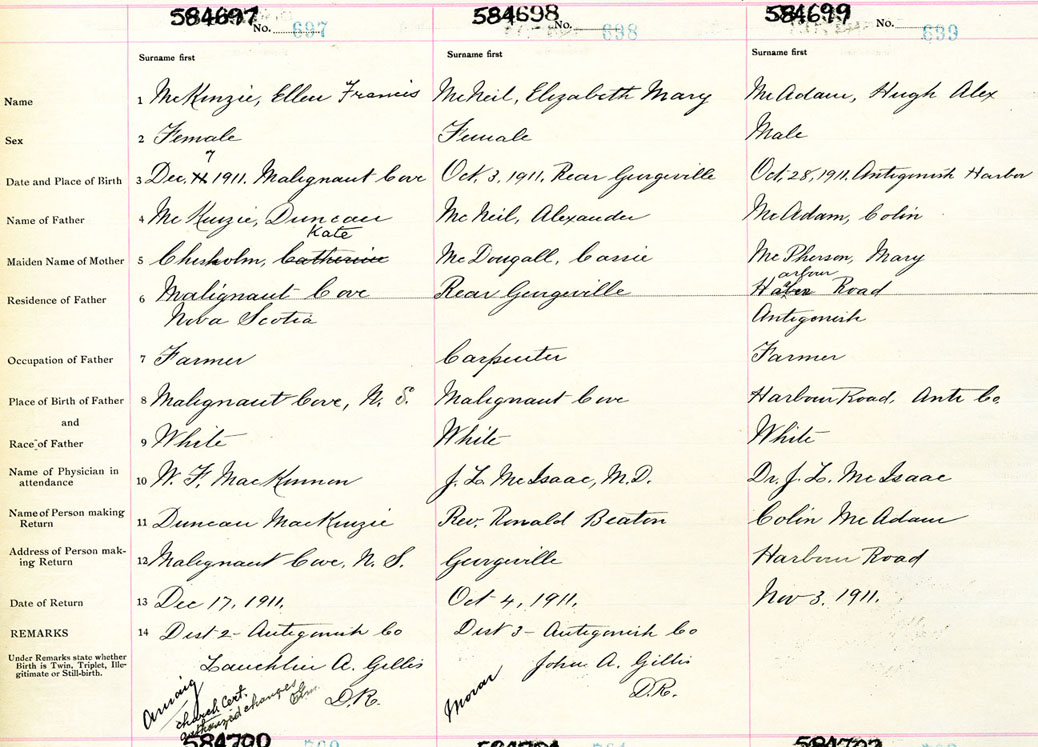 584697 584698 584699
No. 697 No. 698 No. 699
Surname first Surname first Surname first
Name 1 McKenzie, Ellen Francis McNeil, Elizabeth Mary McAdam, Hugh Alex
Sex 2 Female Female Male
7
Date and Place of Birth 3 Dec. 1911. Malignant Cove Oct. 3, 1911. Rear Georgeville Oct. 28, 1911. Antigonish Harbor
Name of Father 4 McKenzie, Duncan McNeil, Alexander McAdam, Colin
Kate
Maiden Name of Mother 5 Chisholm, Catherine McDougall, Cassie McPherson, Mary
arbour
Residence of Father 6 Malignant Cove Rear Georgeville Road
Nova Scotia Antigonish
Occupation of Father 7 Farmer Carpenter Farmer
Place of Birth of Father 8 Malignant Cove, N. S. Malignant Cove Harbour Road, Anti Co.
and
Race of Father 9 White White White
Name of Physician in
attendance 10 W. F. MacKinnon J. L. McIsaac, M.D. Dr. J. L. McIsaac
Name of Person making
Return 11 Duncan MacKenzie Rev. Ronald Beaton Colin McAdam
Address of Person mak-
ing Return 12 Malignant Cove, N. S. Georgeville Harbour Road
Date of Return 13 Dec 17, 1911. Oct 4, 1911. Nov 3, 1911.
REMARKS 14 Dist 2 - Antigonish Co Dist 3 - Antigonish Co
Under Remarks state whether
Birth is Twin, Triplet, Ille-
gitimate or Still-birth.
Lauchlin A. Gillis John A. Gillis
D.R. D.R.
Arisaig
church cert.
authorized changes
Morar
584700